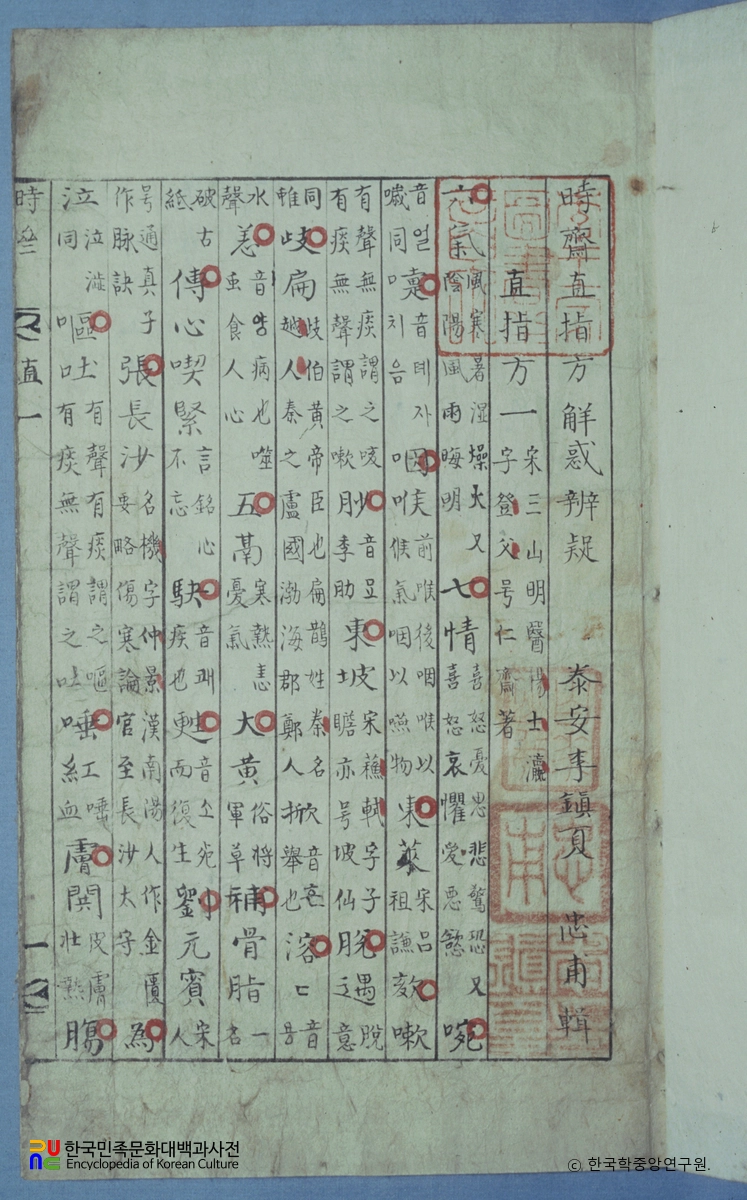 時齋直指方解惑辨疑 泰安李鎭夏 忠甫 輯
直指方一 宋三山明醫楊士瀛字登父号仁齋著
六氣 風寒暑湿燥火又陰陽風雨晦明 七情 喜怒憂思悲驚恐又喜怒哀懼愛惡慾 啘
音얼噦同미치음 疐 音톄자 咽喉 前喉後咽喉以候氣咽以嚥物 東萊 宋呂祖謙 欬嗽
有聲無痰謂之咳有痰無聲謂之嗽 眇 音묘李助 東坡 宋蘓軾字子瞻亦号坡仙 脫 遇脫之意
同帷 岐扁 岐伯黃帝臣也扁鵲姓秦名越人秦之盧國渤海郡鄭人 掀 音흔擧也 溶 音용
水聲 恙 音양病也噬虫食人心 五鬲 寒熱恚憂氣 大黃 俗將軍草 補骨脂 一名
破古紙 傳心喫緊 言銘心不忘 疾也 甦 音소死而復生 劉元賓 宋人
号通真子作脉訣 張長沙 名機字仲景漢南陽人作金匱要略傷寒論官至長沙太守 為
泣 泣澁同 嘔吐 有聲有痰謂之嘔有痰無聲謂之吐 唾紅 唾血 膚 皮膚壯熱 腸
直一
一
한국민족문화대백과사전
Encyclopedia of Korean Culture
© 한국학중앙연구원.